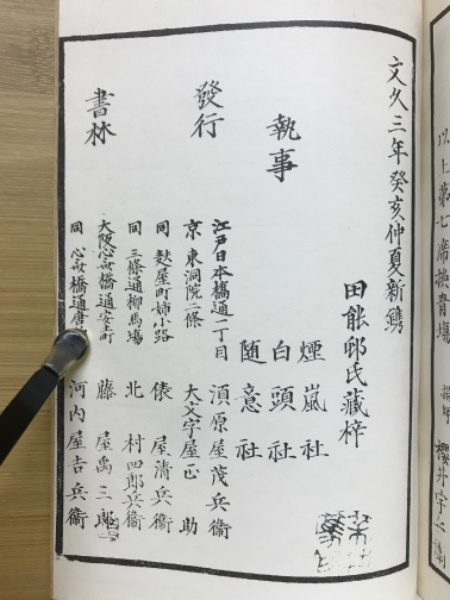 文久三年癸亥仲夏新鐫
田能邨氏藏梓
執事
煙嵐社
白頭社
随意社
發行
書林
江戸日本橋通一丁目 須原屋茂兵衞
京東洞院二條 大文字屋正助
同麩屋町姉小路 俵屋清兵衞
同三條通柳馬塲 北村四郎兵衞
大阪心斎橋通安土町 藤屋禹三郎
同心斎橋通唐 河内屋吉兵衞
以上第七席換貴塊
櫻井